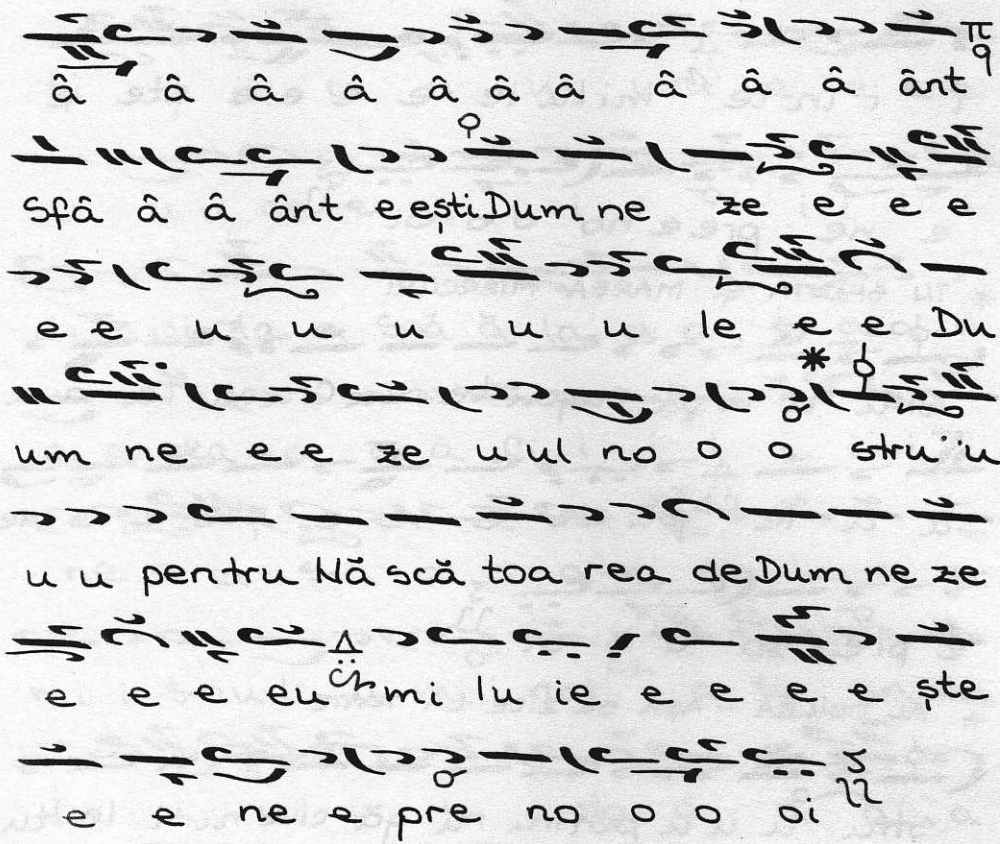 â â â â â â â â â â ânt
Sfâ â â ânt e ești Dum ne ze e e e
e e u u u u u le e e Du
um ne e e ze u ul no o o stru u u
u u pentru Nă scă toa rea de Dum ne ze
e e e eu mi lu ie e e e e ște
e e ne e pre no o o oi